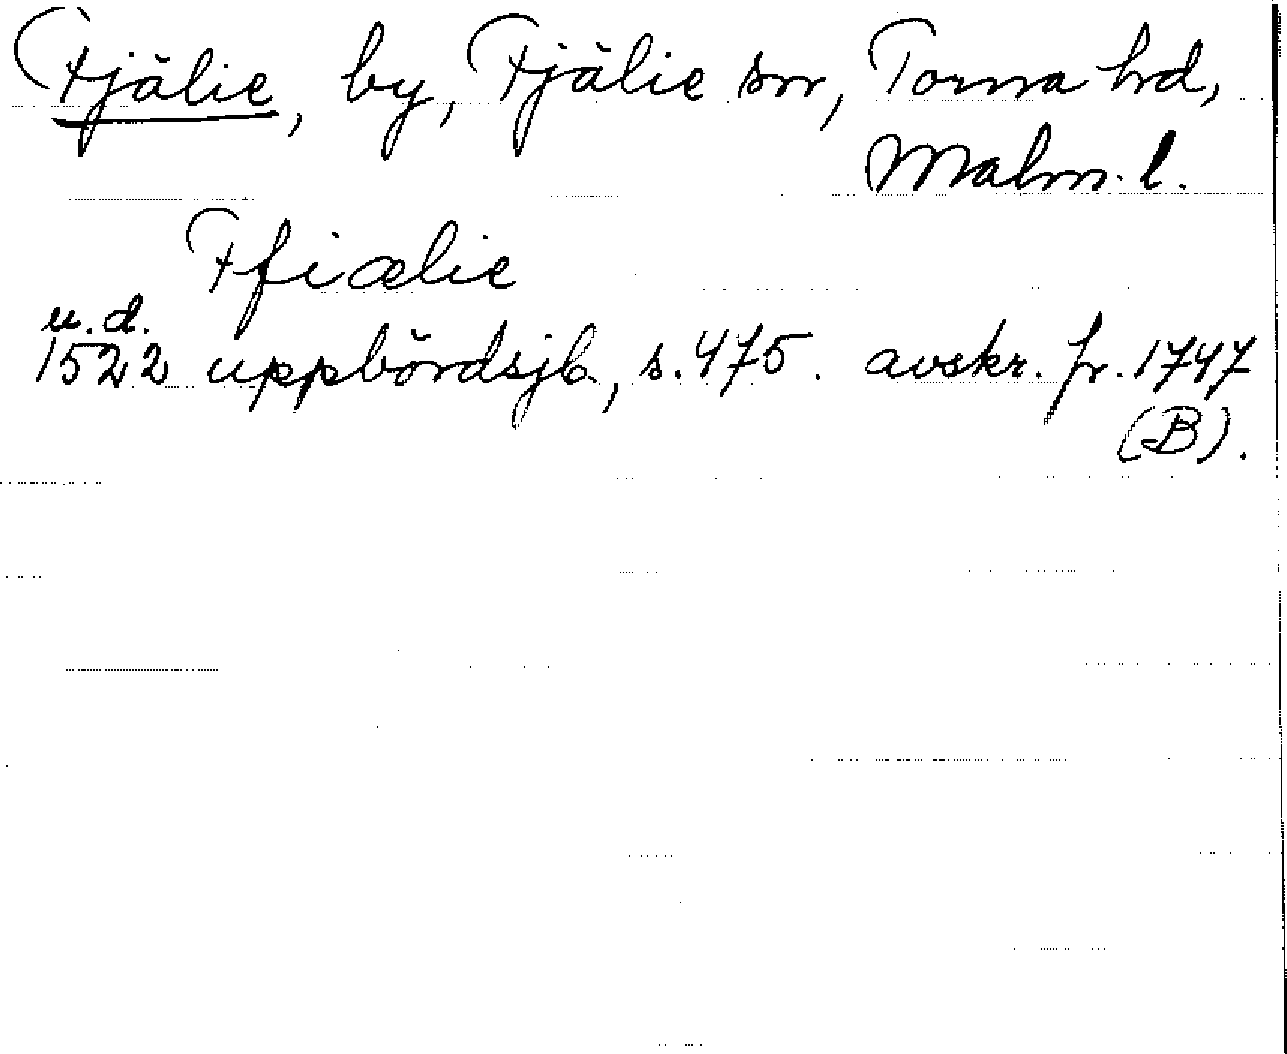 Fjälie, by, Fjälie sn, Torna hrd,
Malm. l.
Ffiælie
u.d.
1522 uppbördsjb, s. 475. avskr. fr. 1747
(B).